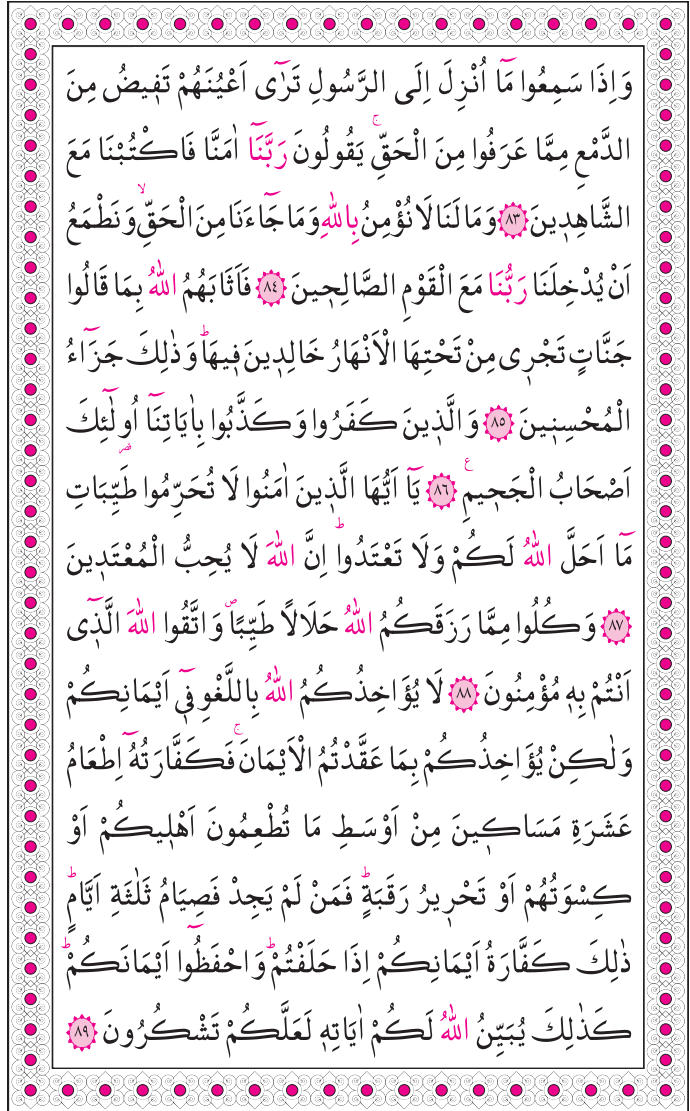 وَاِذَا سَمِعُوا مَٓا اُنْزِلَ اِلَى الرَّسُولِ تَرٰٓى اَعْيُنَهُمْ تَفٖيضُ مِنَ
الدَّمْعِ مِمَّا عَرَفُوا مِنَ الْحَقِّۚ يَقُولُونَ رَبَّنَٓا اٰمَنَّا فَاكْتُبْنَا مَعَ
الشَّاهِدٖينَ ﴿٨٣﴾ وَمَا لَنَا لَا نُؤْمِنُ بِاللّٰهِ وَمَا جَٓاءَنَا مِنَ الْحَقِّۙ وَنَطْمَعُ
اَنْ يُدْخِلَنَا رَبُّنَا مَعَ الْقَوْمِ الصَّالِحٖينَ ﴿٨٤﴾ فَاَثَابَهُمُ اللّٰهُ بِمَا قَالُوا
جَنَّاتٍ تَجْرٖى مِنْ تَحْتِهَا الْاَنْهَارُ خَالِدٖينَ فٖيهَاؕ وَذٰلِكَ جَزَٓاءُ
الْمُحْسِنٖينَ ﴿٨٥﴾ وَالَّذٖينَ كَفَرُوا وَكَذَّبُوا بِاٰيَاتِنَٓا اُولٰٓئِكَ
اَصْحَابُ الْجَحٖيمِࣖ ﴿٨٦﴾ يَٓا اَيُّهَا الَّذٖينَ اٰمَنُوا لَا تُحَرِّمُوا طَيِّبَاتِ
مَٓا اَحَلَّ اللّٰهُ لَكُمْ وَلَا تَعْتَدُواؕ اِنَّ اللّٰهَ لَا يُحِبُّ الْمُعْتَدٖينَ
﴿٨٧﴾ وَكُلُوا مِمَّا رَزَقَكُمُ اللّٰهُ حَلَالًا طَيِّبًاࣕ وَاتَّقُوا اللّٰهَ الَّذٖٓى
اَنْتُمْ بِهٖ مُؤْمِنُونَ ﴿٨٨﴾ لَا يُؤَاخِذُكُمُ اللّٰهُ بِاللَّغْوِ فٖٓى اَيْمَانِكُمْ
وَلٰكِنْ يُؤَاخِذُكُمْ بِمَا عَقَّدْتُمُ الْاَيْمَانَۚ فَكَفَّارَتُهُٓ اِطْعَامُ
عَشَرَةِ مَسَاكٖينَ مِنْ اَوْسَطِ مَا تُطْعِمُونَ اَهْلٖيكُمْ اَوْ
كِسْوَتُهُمْ اَوْ تَحْرٖيرُ رَقَبَةٍؕ فَمَنْ لَمْ يَجِدْ فَصِيَامُ ثَلٰثَةِ اَيَّامٍؕ
ذٰلِكَ كَفَّارَةُ اَيْمَانِكُمْ اِذَا حَلَفْتُمْؕ وَاحْفَظُٓوا اَيْمَانَكُمْؕ
كَذٰلِكَ يُبَيِّنُ اللّٰهُ لَكُمْ اٰيَاتِهٖ لَعَلَّكُمْ تَشْكُرُونَ ﴿٨٩﴾